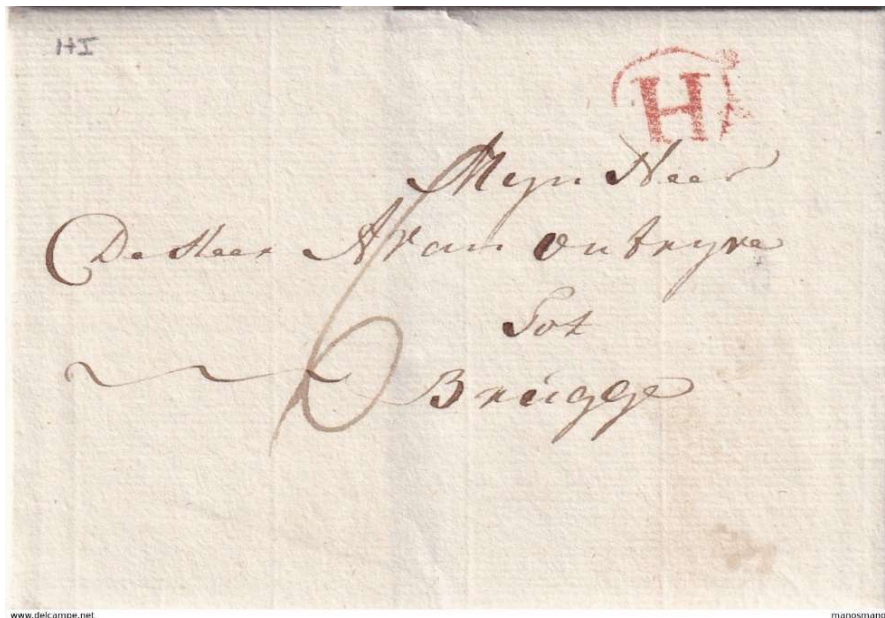 HI
H
Mijn Heer
De Heer A Van Outryve
Tot
6 Brugge
www.delcampe.net
manosmano